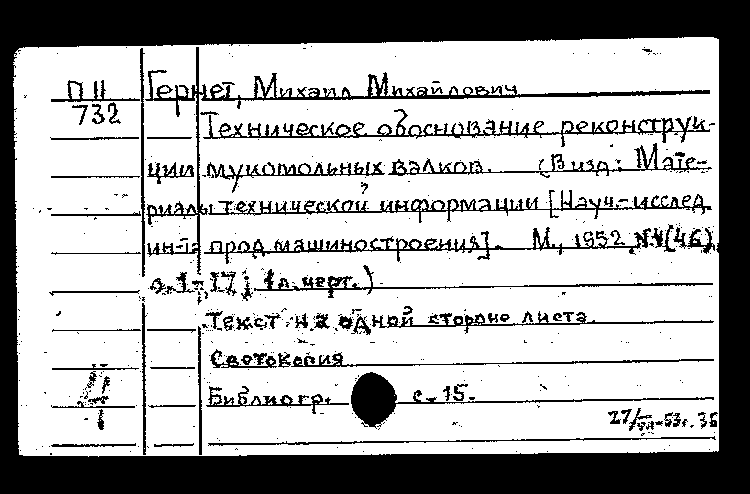 П II Гернет, Михаил Михайлович
732
Техническое обоснование реконструк-
ции мукомольных валков. (В изд: Мате-
риалы технической информации [Науч.-исслед.
ин-та прод. машиностроения]. М., 1952 №4(46),
с. 1-17; 1 л. черт.)
Текст на одной стороне листа.
Светокопия
Библиогр. с. 15.